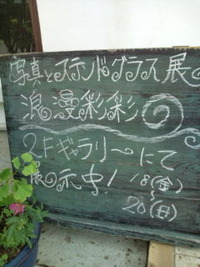 写真とステンドグラス展
浪漫彩彩
2Fギャラリーにて
展示中！ 18(金)
〜
20(日)